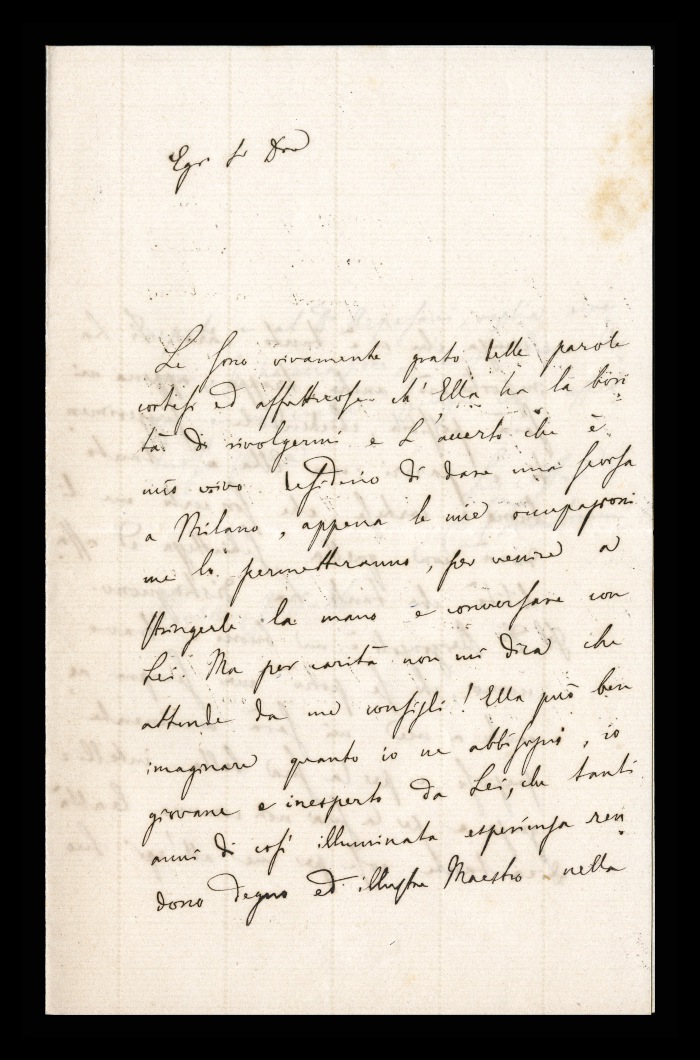 Egr. Sr Dre
Le sono vivamente grato delle parole
cortesi ed affettuose ch' Ella ha la bon
tà di rivolgermi e L'accerto che è
mio vivo desiderio di dare una scorsa
a Milano, appena le mie occupazioni
me lo permetteranno, per venire a
stringerle la mano e conversare con
Lei. Ma per carità non mi dica che
attende da me consigli! Ella può ben
imaginare quanto io ne abbisogni, io
giovane e inesperto da Lei, che tanti
anni di così illuminata esperienza ren
dono degno ed illustre Maestro nella